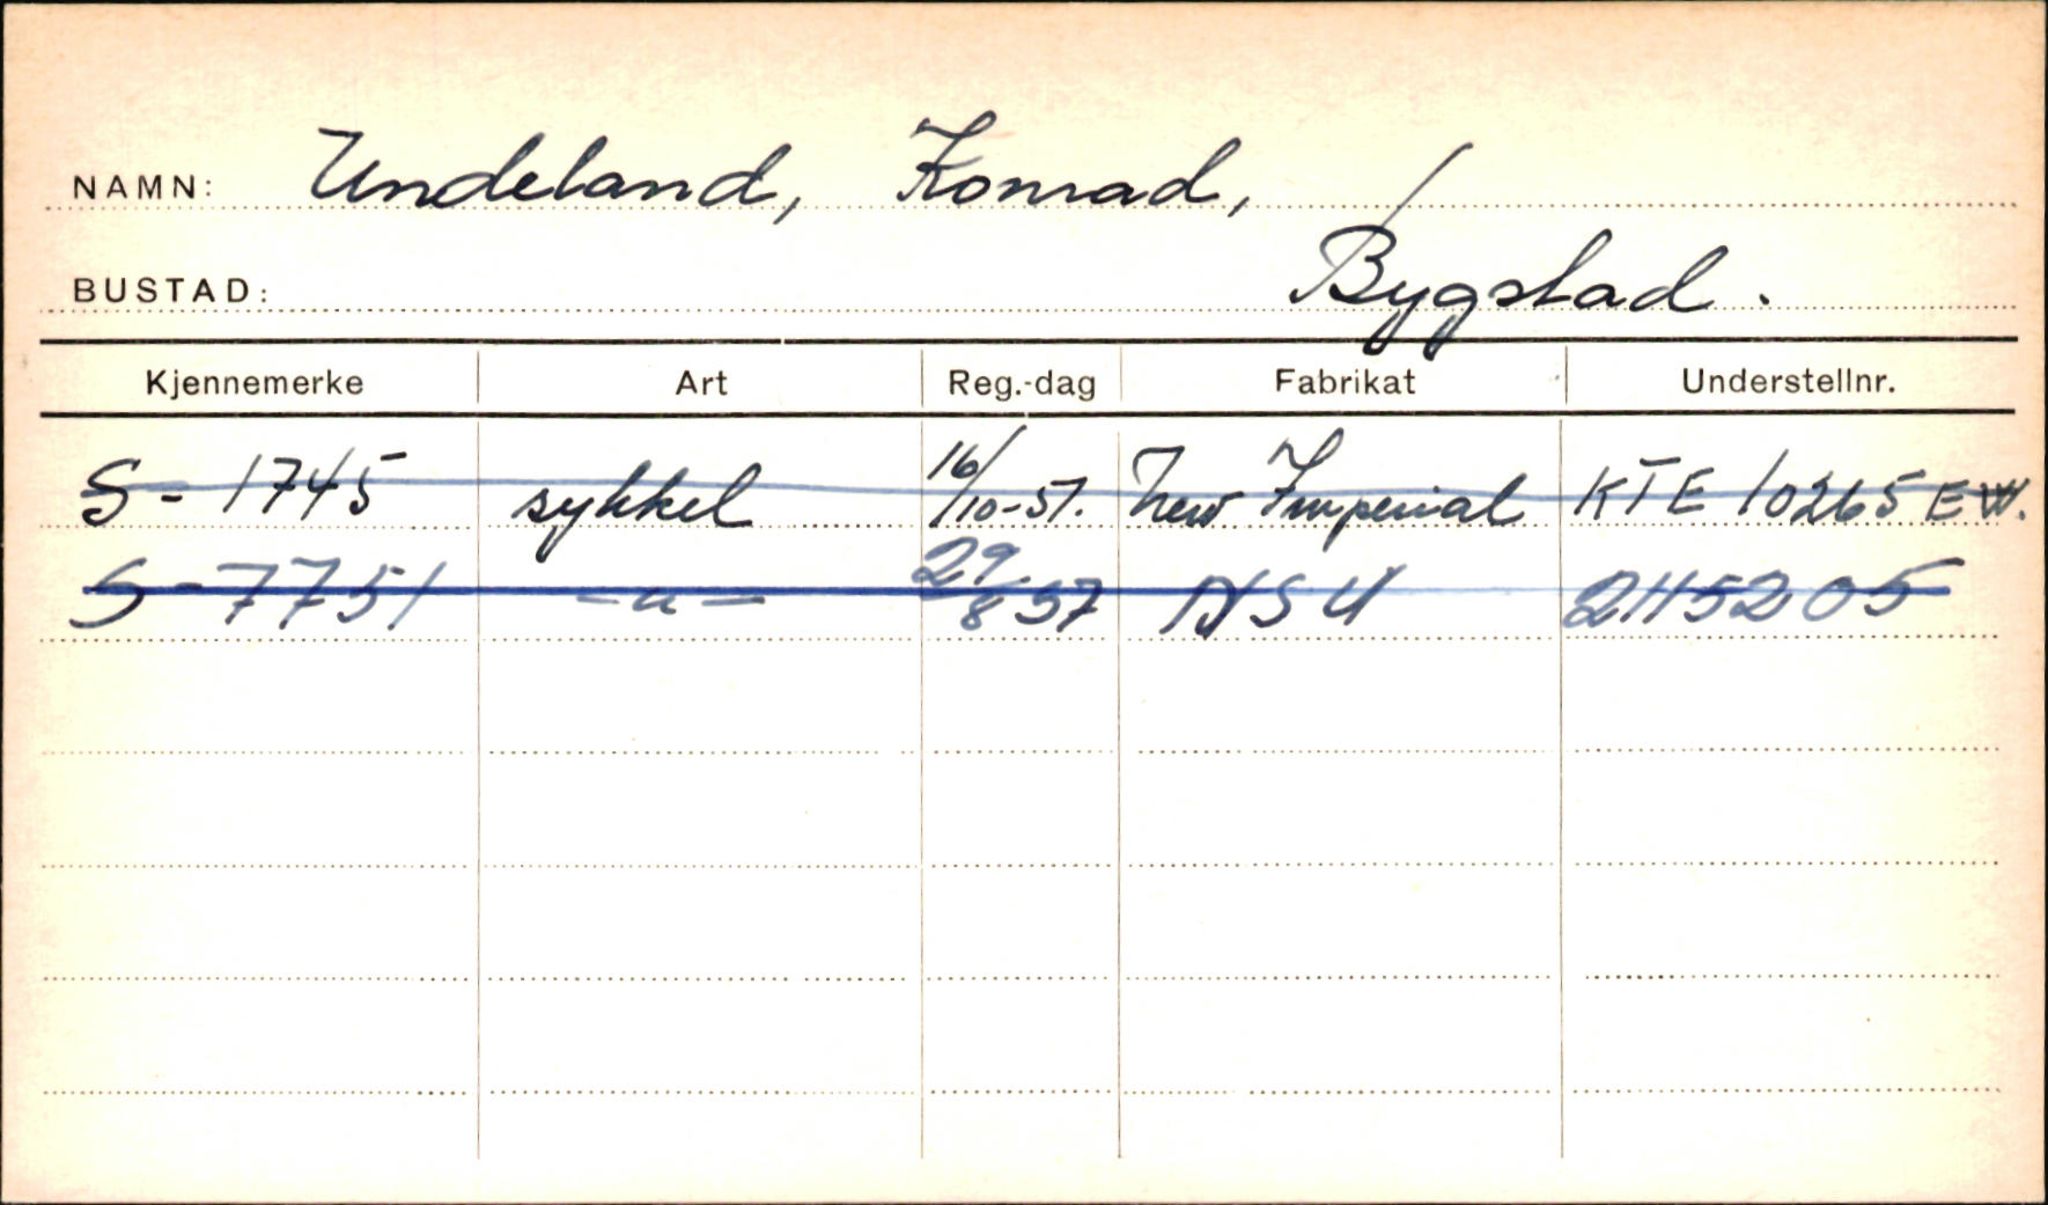 NAMN: Undeland, Konrad,
BUSTAD: Bygstad.
Kjennemerke Art Reg.-dag Fabrikat Understellnr.
S-1745 sykkel 16/10-51. New Imperial KTE 10265 EW.
S-7751 -"- 29/8-57 NSU 2115205